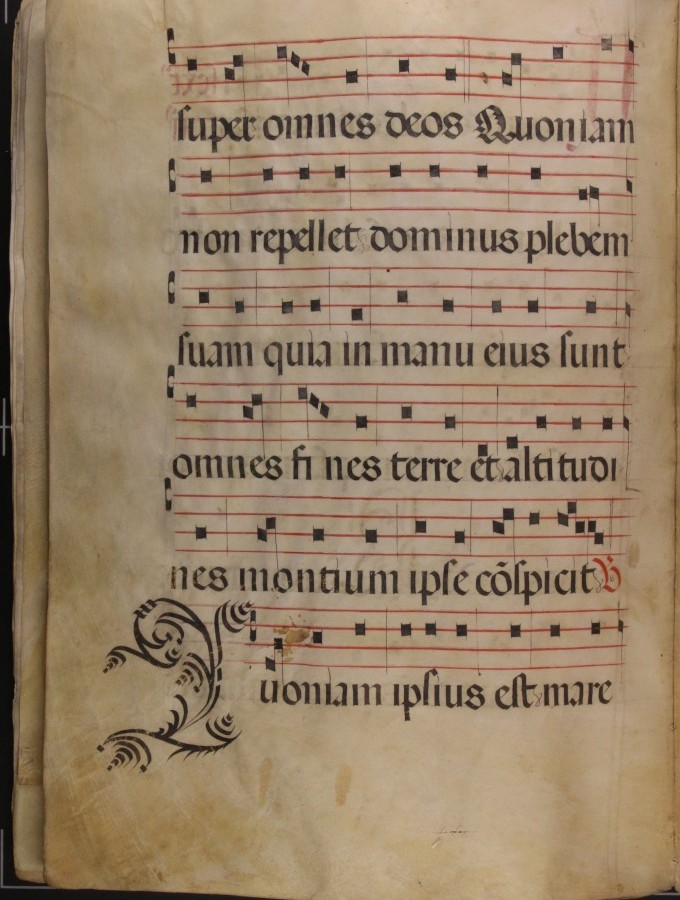 super omnes deos Quoniam
non repellet dominus plebem
suam quia in manu eius sunt
omnes fi nes terre et altitudi
nes montium ipse cõspicit
Quoniam ipsius est mare